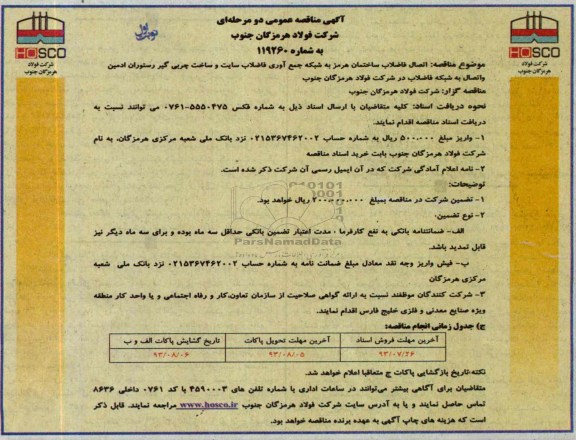 آگهی مناقصه عمومی دو مرحله‌ای
شرکت فولاد هرمزگان جنوب
به شماره ۱۱۹۲۶۰
نوبت اول
HOSCO
شرکت فولاد
هرمزگان جنوب
HOSCO
شرکت فولاد
هرمزگان جنوب
موضوع مناقصه: اتصال فاضلاب ساختمان هرمز به شبکه جمع آوری فاضلاب سایت و ساخت چربی گیر رستوران ادمین
واتصال به شبکه فاضلاب در شرکت فولاد هرمزگان جنوب
مناقصه گزار: شرکت فولاد هرمزگان جنوب
نحوه دریافت اسناد: کلیه متقاضیان با ارسال اسناد ذیل به شماره فکس ۵۵۵۰۴۷۵-۰۷۶۱ می توانند نسبت به
دریافت اسناد مناقصه اقدام نمایند.
۱- واریز مبلغ ۵۰۰،۰۰۰ ریال به شماره حساب ۰۲۱۵۳۶۷۴۶۲۰۰۲ نزد بانک ملی شعبه مرکزی هرمزگان، به نام
شرکت فولاد هرمزگان جنوب بابت خرید اسناد مناقصه
۲- نامه اعلام آمادگی شرکت که در آن ایمیل رسمی آن شرکت ذکر شده است.
توضیحات:
۱- تضمین شرکت در مناقصه بمبلغ ۲۰۰،۰۰۰،۰۰۰ ریال خواهد بود.
۲- نوع تضمین:
الف- ضمانتنامه بانکی به نفع کارفرما ، مدت اعتبار تضمین بانکی حداقل سه ماه بوده و برای سه ماه دیگر نیز
قابل تمدید باشد.
ParsNamadData
ب- فیش واریز وجه نقد معادل مبلغ ضمانت نامه به شماره حساب ۰۲۱۵۳۶۷۴۶۲۰۰۲ نزد بانک ملی شعبه
مرکزی هرمزگان
۳- شرکت کنندگان موظفند نسبت به ارائه گواهی صلاحیت از سازمان تعاون،کار و رفاه اجتماعی و یا واحد کار منطقه
ویژه صنایع معدنی و فلزی خلیج فارس اقدام نمایند.
ج) جدول زمانی انجام مناقصه:
آخرین مهلت فروش اسناد آخرین مهلت تحویل پاکات تاریخ گشایش پاکات الف و ب
۹۳/۰۷/۲۶ ۹۳/۰۸/۰۵ ۹۳/۰۸/۰۶
نکته:تاریخ بازگشایی پاکات ج متعاقبا اعلام خواهد شد.
متقاضیان برای آگاهی بیشتر می‌توانند در ساعات اداری با شماره تلفن های ۴۵۹۰۰۰۳ با کد ۰۷۶۱ داخلی ۸۶۳۶
تماس حاصل نمایند و یا به آدرس سایت شرکت فولاد هرمزگان جنوب www.hosco.ir مراجعه نمایند. قابل ذکر
است که هزینه های چاپ آگهی به عهده برنده مناقصه خواهد بود.